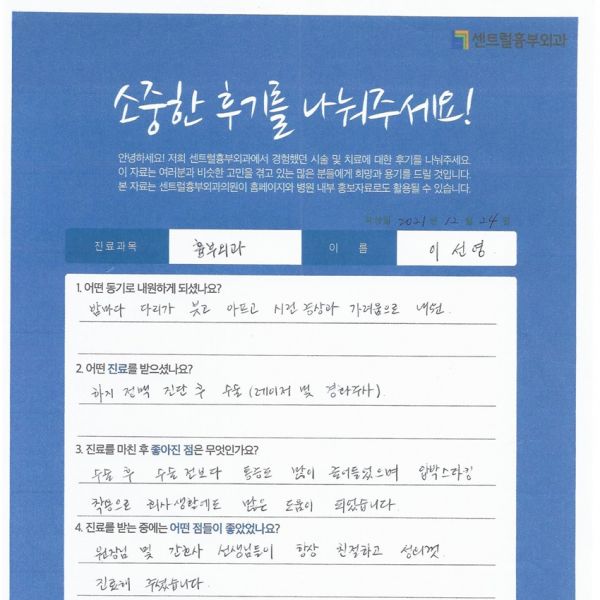 센트럴흉부외과
소중한 후기를 나눠주세요!
안녕하세요! 저희 센트럴흉부외과에서 경험했던 시술 및 치료에 대한 후기를 나눠주세요.
이 자료는 여러분과 비슷한 고민을 겪고 있는 많은 분들에게 희망과 용기를 드릴 것입니다.
본 자료는 센트럴흉부외과의원이 홈페이지와 병원 내부 홍보자료로도 활용될 수 있습니다.
작성일 2021 년 12 월 24 일
진료과목 흉부외과 이 름 이 선 영
1. 어떤 동기로 내원하게 되셨나요?
밤마다 다리가 붓고 아프고 시린 증상과 가려움으로 내원.
2. 어떤 진료를 받으셨나요?
하지 정맥 진단 후 수술 (레이저 및 경화주사).
3. 진료를 마친 후 좋아진 점은 무엇인가요?
수술 후 수술 전보다 통증도 많이 줄어들었으며 압박스타킹
착용으로 회사생활에도 많은 도움이 되었습니다.
4. 진료를 받는 중에는 어떤 점들이 좋았었나요?
원장님 및 간호사 선생님들이 항상 친절하고 성의껏
진료해 주셨습니다.